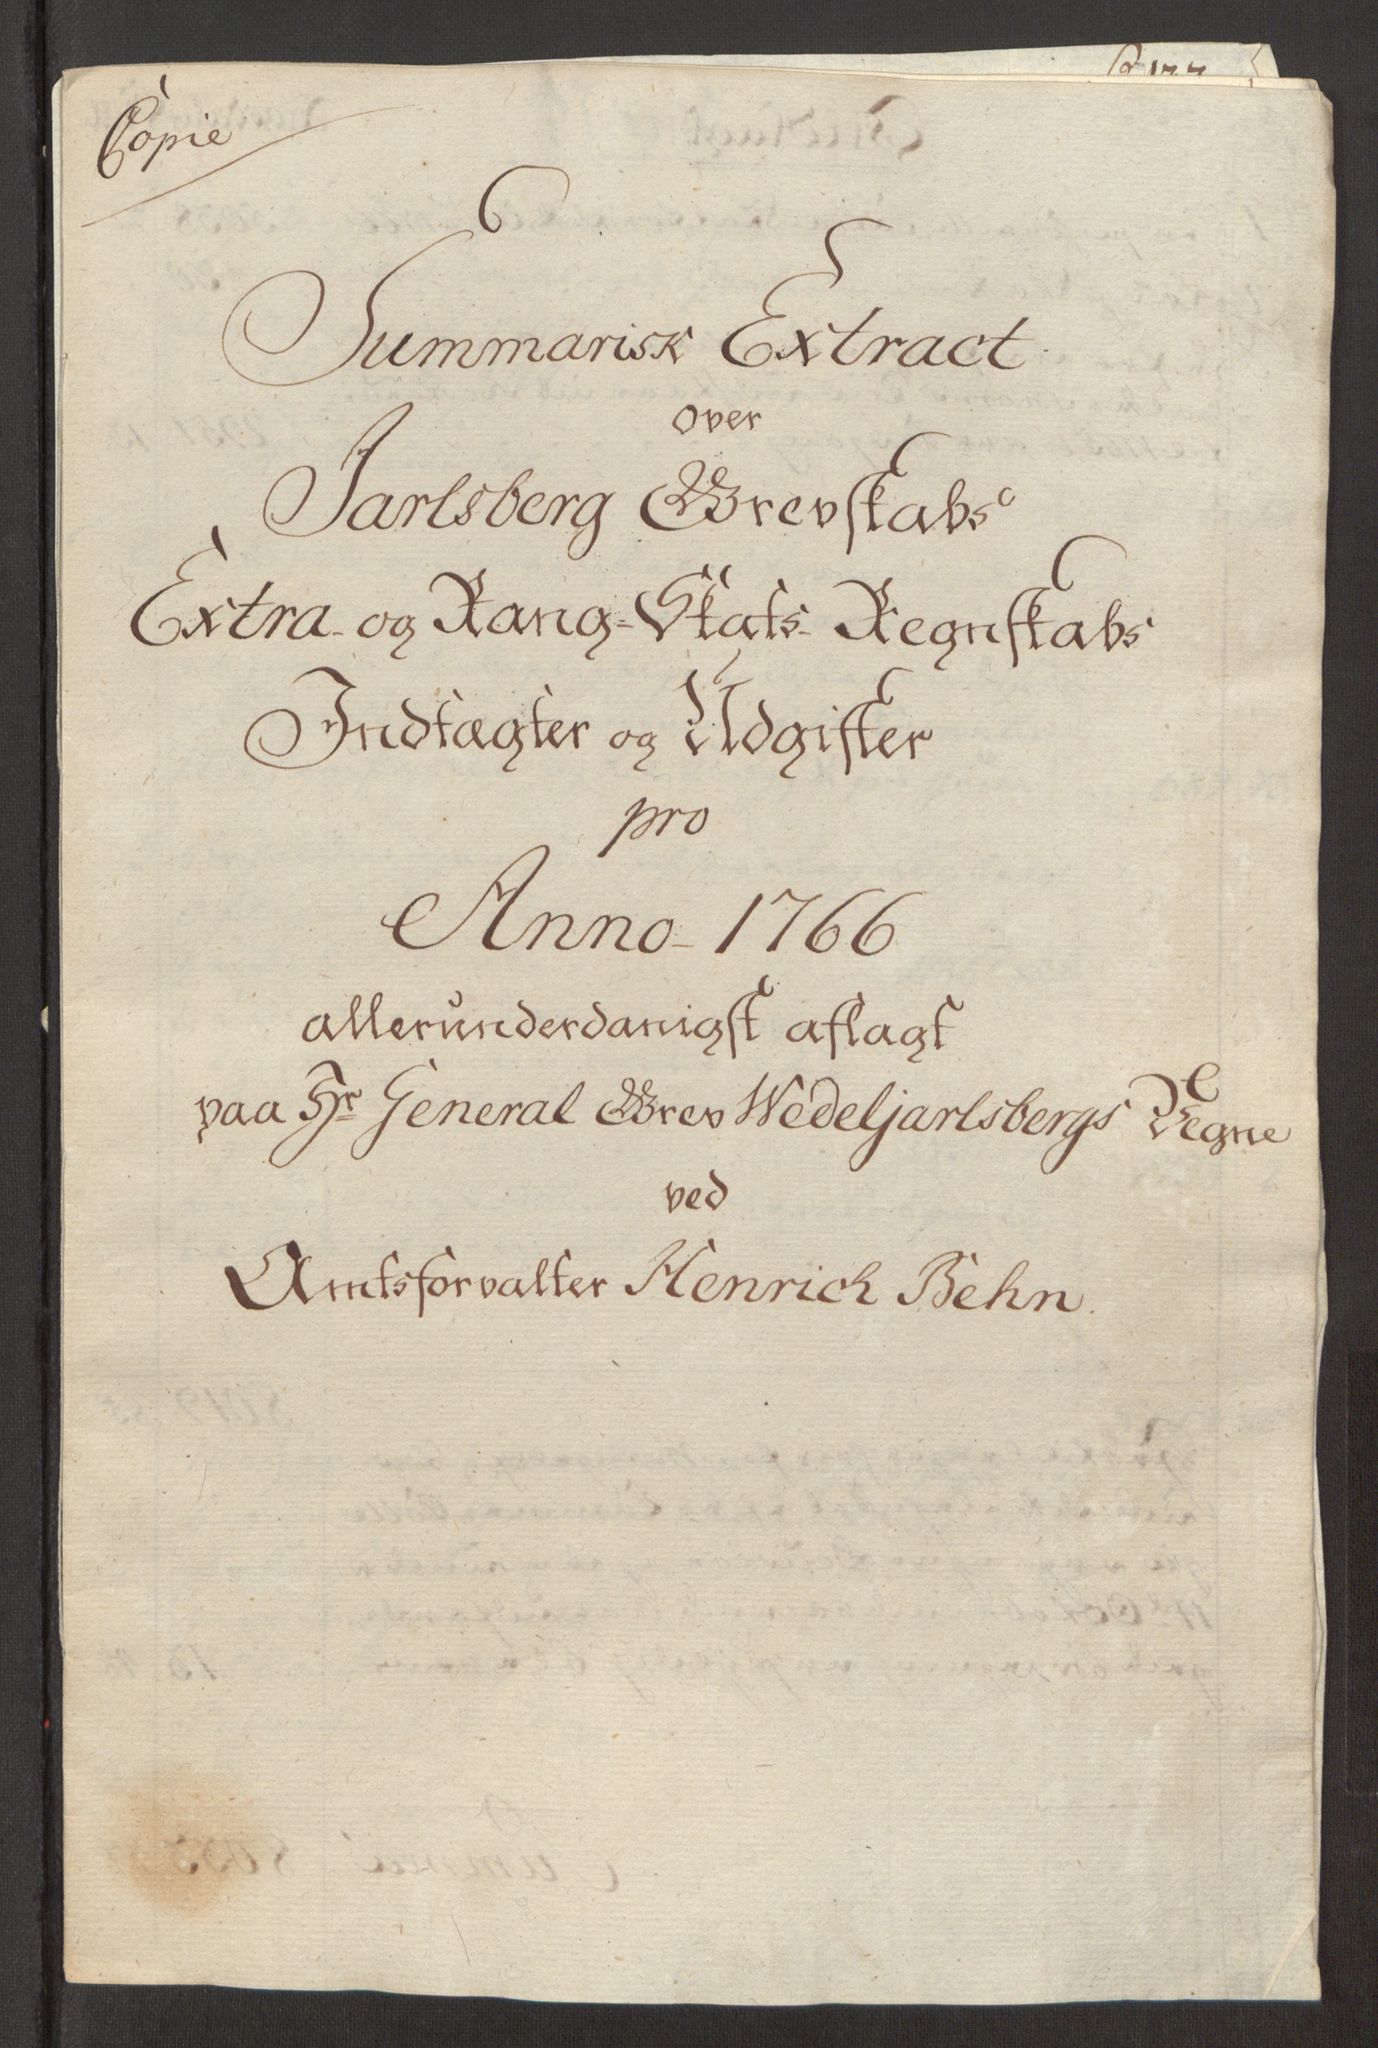 Copie
Summarisk Extract
over
Jarlsberg Grevskabs
Extra- og Rang-Skats- Regnskabs
Indtægter og Udgifter
pro
Anno 1766
allerunderdanigst aflagt
paa Hr General Grev Wedeljarlsbergs Vegne
ved
Amtsforvalter Henrich Behn.